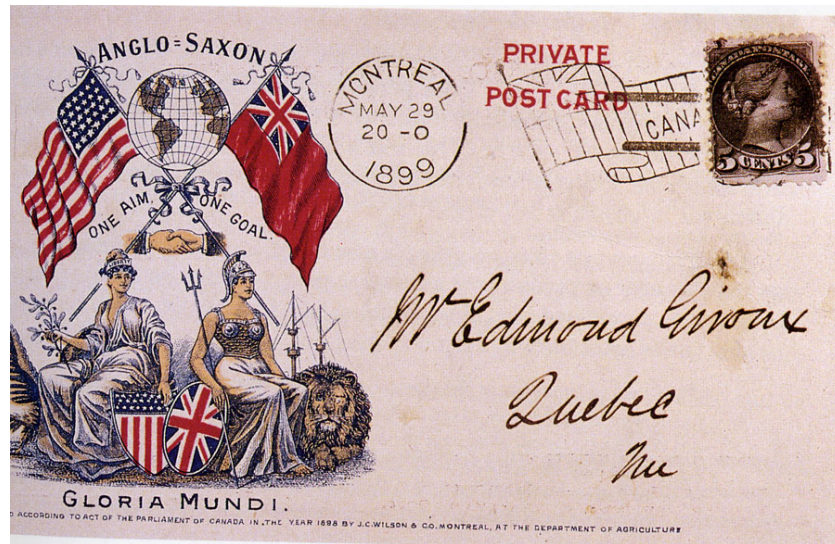 ANGLO=SAXON
ONE AIM, ONE GOAL.
LIBERTY
GLORIA MUNDI.
D ACCORDING TO ACT OF THE PARLIAMENT OF CANADA IN THE YEAR 1898 BY J.C.WILSON & CO. MONTREAL, AT THE DEPARTMENT OF AGRICULTURE
MONTREAL
MAY 29
20-0
1899
PRIVATE
POST CARD
CANA
CANADA POSTAGE
5 CENTS 5
Mr Edmond Giroux
Quebec